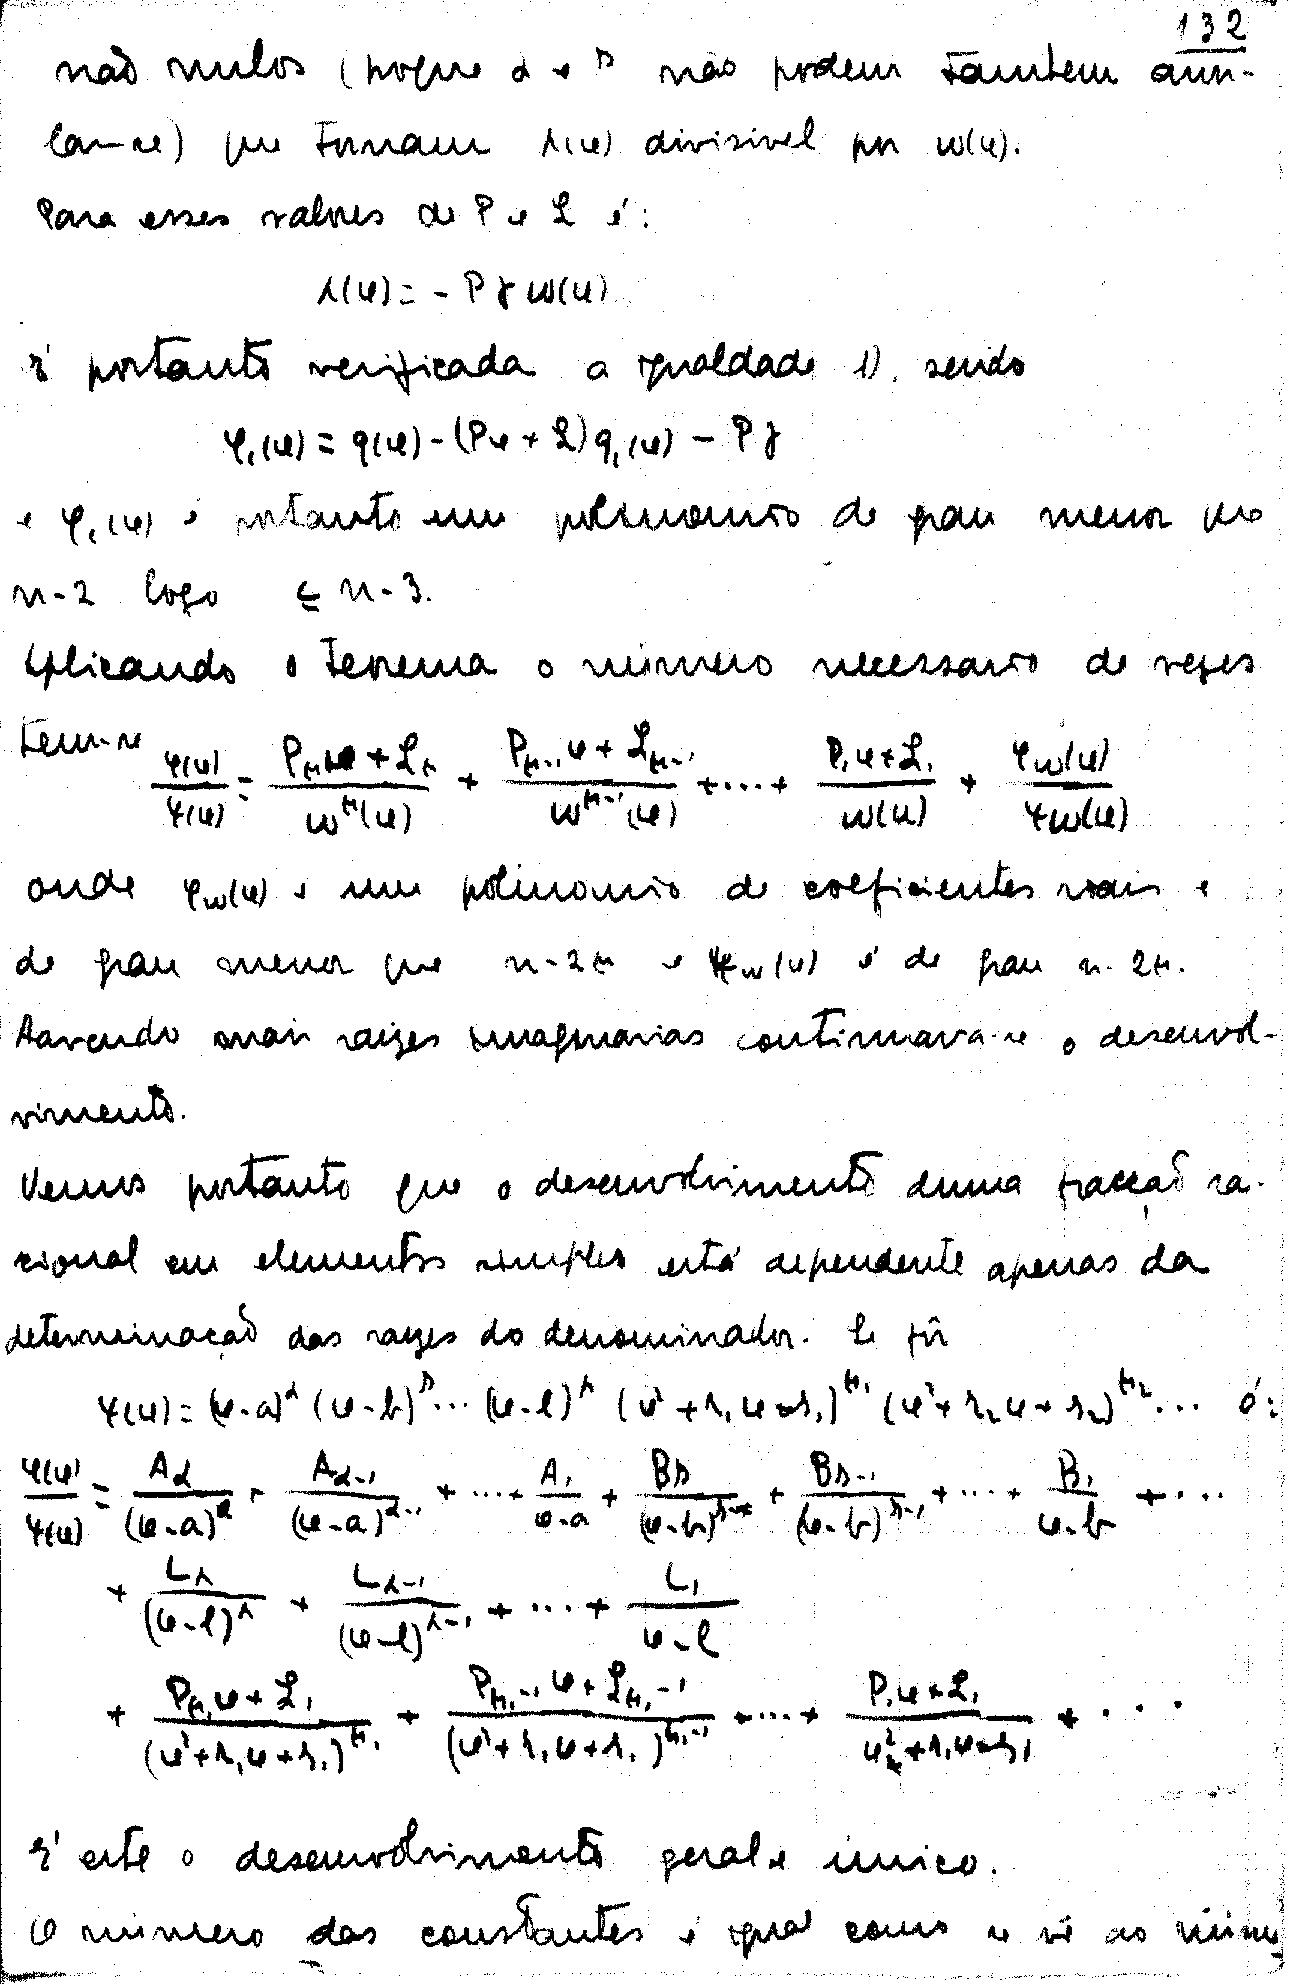 132
não nulos (porque α e β não podem tambem anu-
lar-se) que tornam λ(x) divisivel por w(x).
Para esses valores de P e L é:
λ(x) = - P γ w(x)
E' portanto verificada a igualdade 1), sendo
φ₁(x) = q(x) - (Px + L) q₁(x) - P γ
e φ₁(x) é portanto um polinomio de grau menor que
n-2 logo ≤ n-3.
Aplicando o teorema o número necessario de vezes
tem-se φ(x)/ψ(x) = (P_μ x + L_μ)/w^μ(x) + (P_μ-1 x + L_μ-1)/w^μ-1(x) + ... + (P₁x + L₁)/w(x) + φ_w(x)/ψ_w(x)
onde φ_w(x) é um polinomio de coeficientes reais e
de grau menor que n-2μ e ψ_w(x) é de grau n-2μ.
Havendo mais raizes imaginarias continuava-se o desenvol-
vimento.
Vemos portanto que o desenvolvimento duma fracção ra-
cional em elementos simples está dependente apenas da
determinação das raizes do denominador. Se fôr
ψ(x) = (x-a)^α (x-b)^β ... (x-l)^λ (x²+r₁x+s₁)^μ₁ (x²+r₂x+s₂)^μ₂ ... é:
φ(x)/ψ(x) = A_α/(x-a)^α + A_α-1/(x-a)^α-1 + ... + A₁/(x-a) + B_β/(x-b)^β + B_β-1/(x-b)^β-1 + ... + B₁/(x-b) + ...
+ L_λ/(x-l)^λ + L_λ-1/(x-l)^λ-1 + ... + L₁/(x-l)
+ (P_μ₁ x + L₁)/(x²+r₁x+s₁)^μ₁ + (P_μ₁-1 x + L_μ₁-1)/(x²+r₁x+s₁)^μ₁-1 + ... + (P₁x + L₁)/(x²+r₁x+s₁) + ...
E' este o desenvolvimento geral e único.
O número das constantes é igual como se vê ao núme